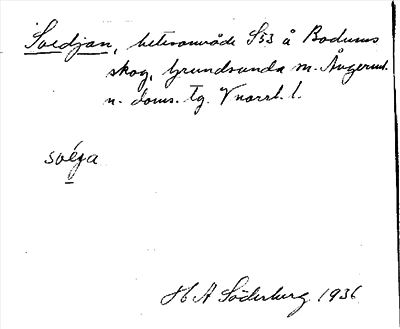 Svedjan, betesområde S53 å Bodums
skog, Grundsunda sn. Ångerml.
n. doms. tg. Vnorrl. l.
svéja
H A Söderberg 1936